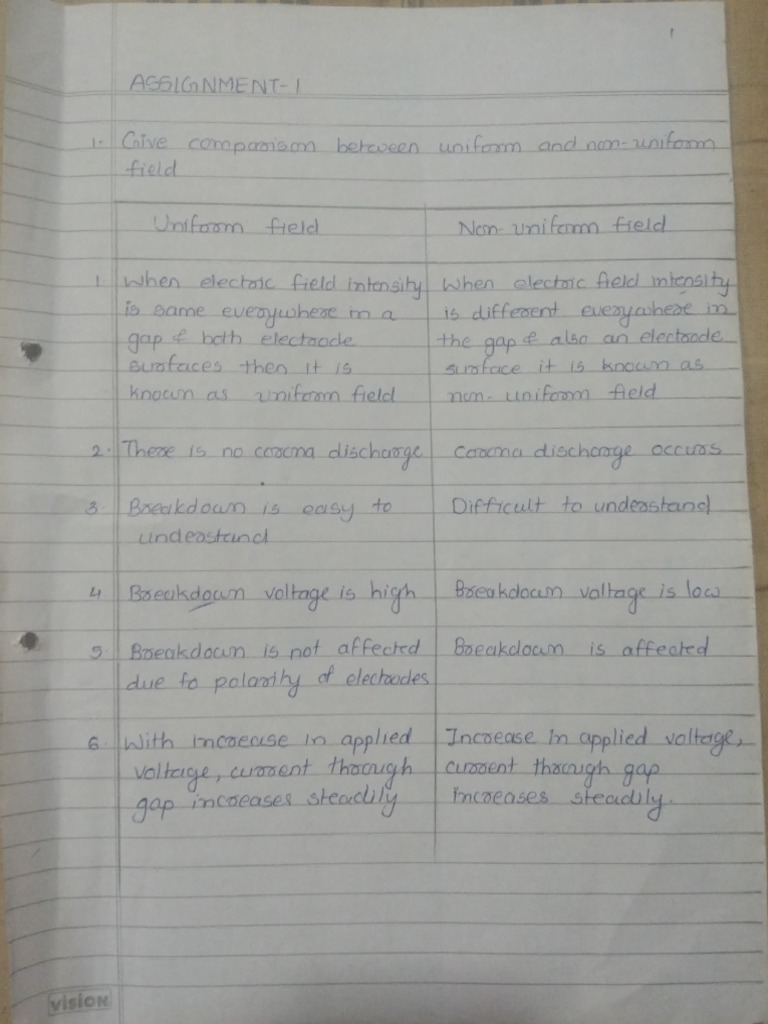 1
ASSIGNMENT-1
1. Give comparison between uniform and non-uniform
field
Uniform field
Non-uniform field
1. When electric field intensity
is same everywhere in a
gap & both electrode
surfaces then it is
known as uniform field
When electric field intensity
is different everywhere in
the gap & also an electrode
surface it is known as
non-uniform field
2. There is no corona discharge
Corona discharge occurs
3. Breakdown is easy to
understand
Difficult to understand
4 Breakdown voltage is high
Breakdown voltage is low
5. Breakdown is not affected
due to polarity of electrodes
Breakdown is affected
6. With increase in applied
voltage, current through
gap increases steadily
Increase in applied voltage,
current through gap
increases steadily.
vision